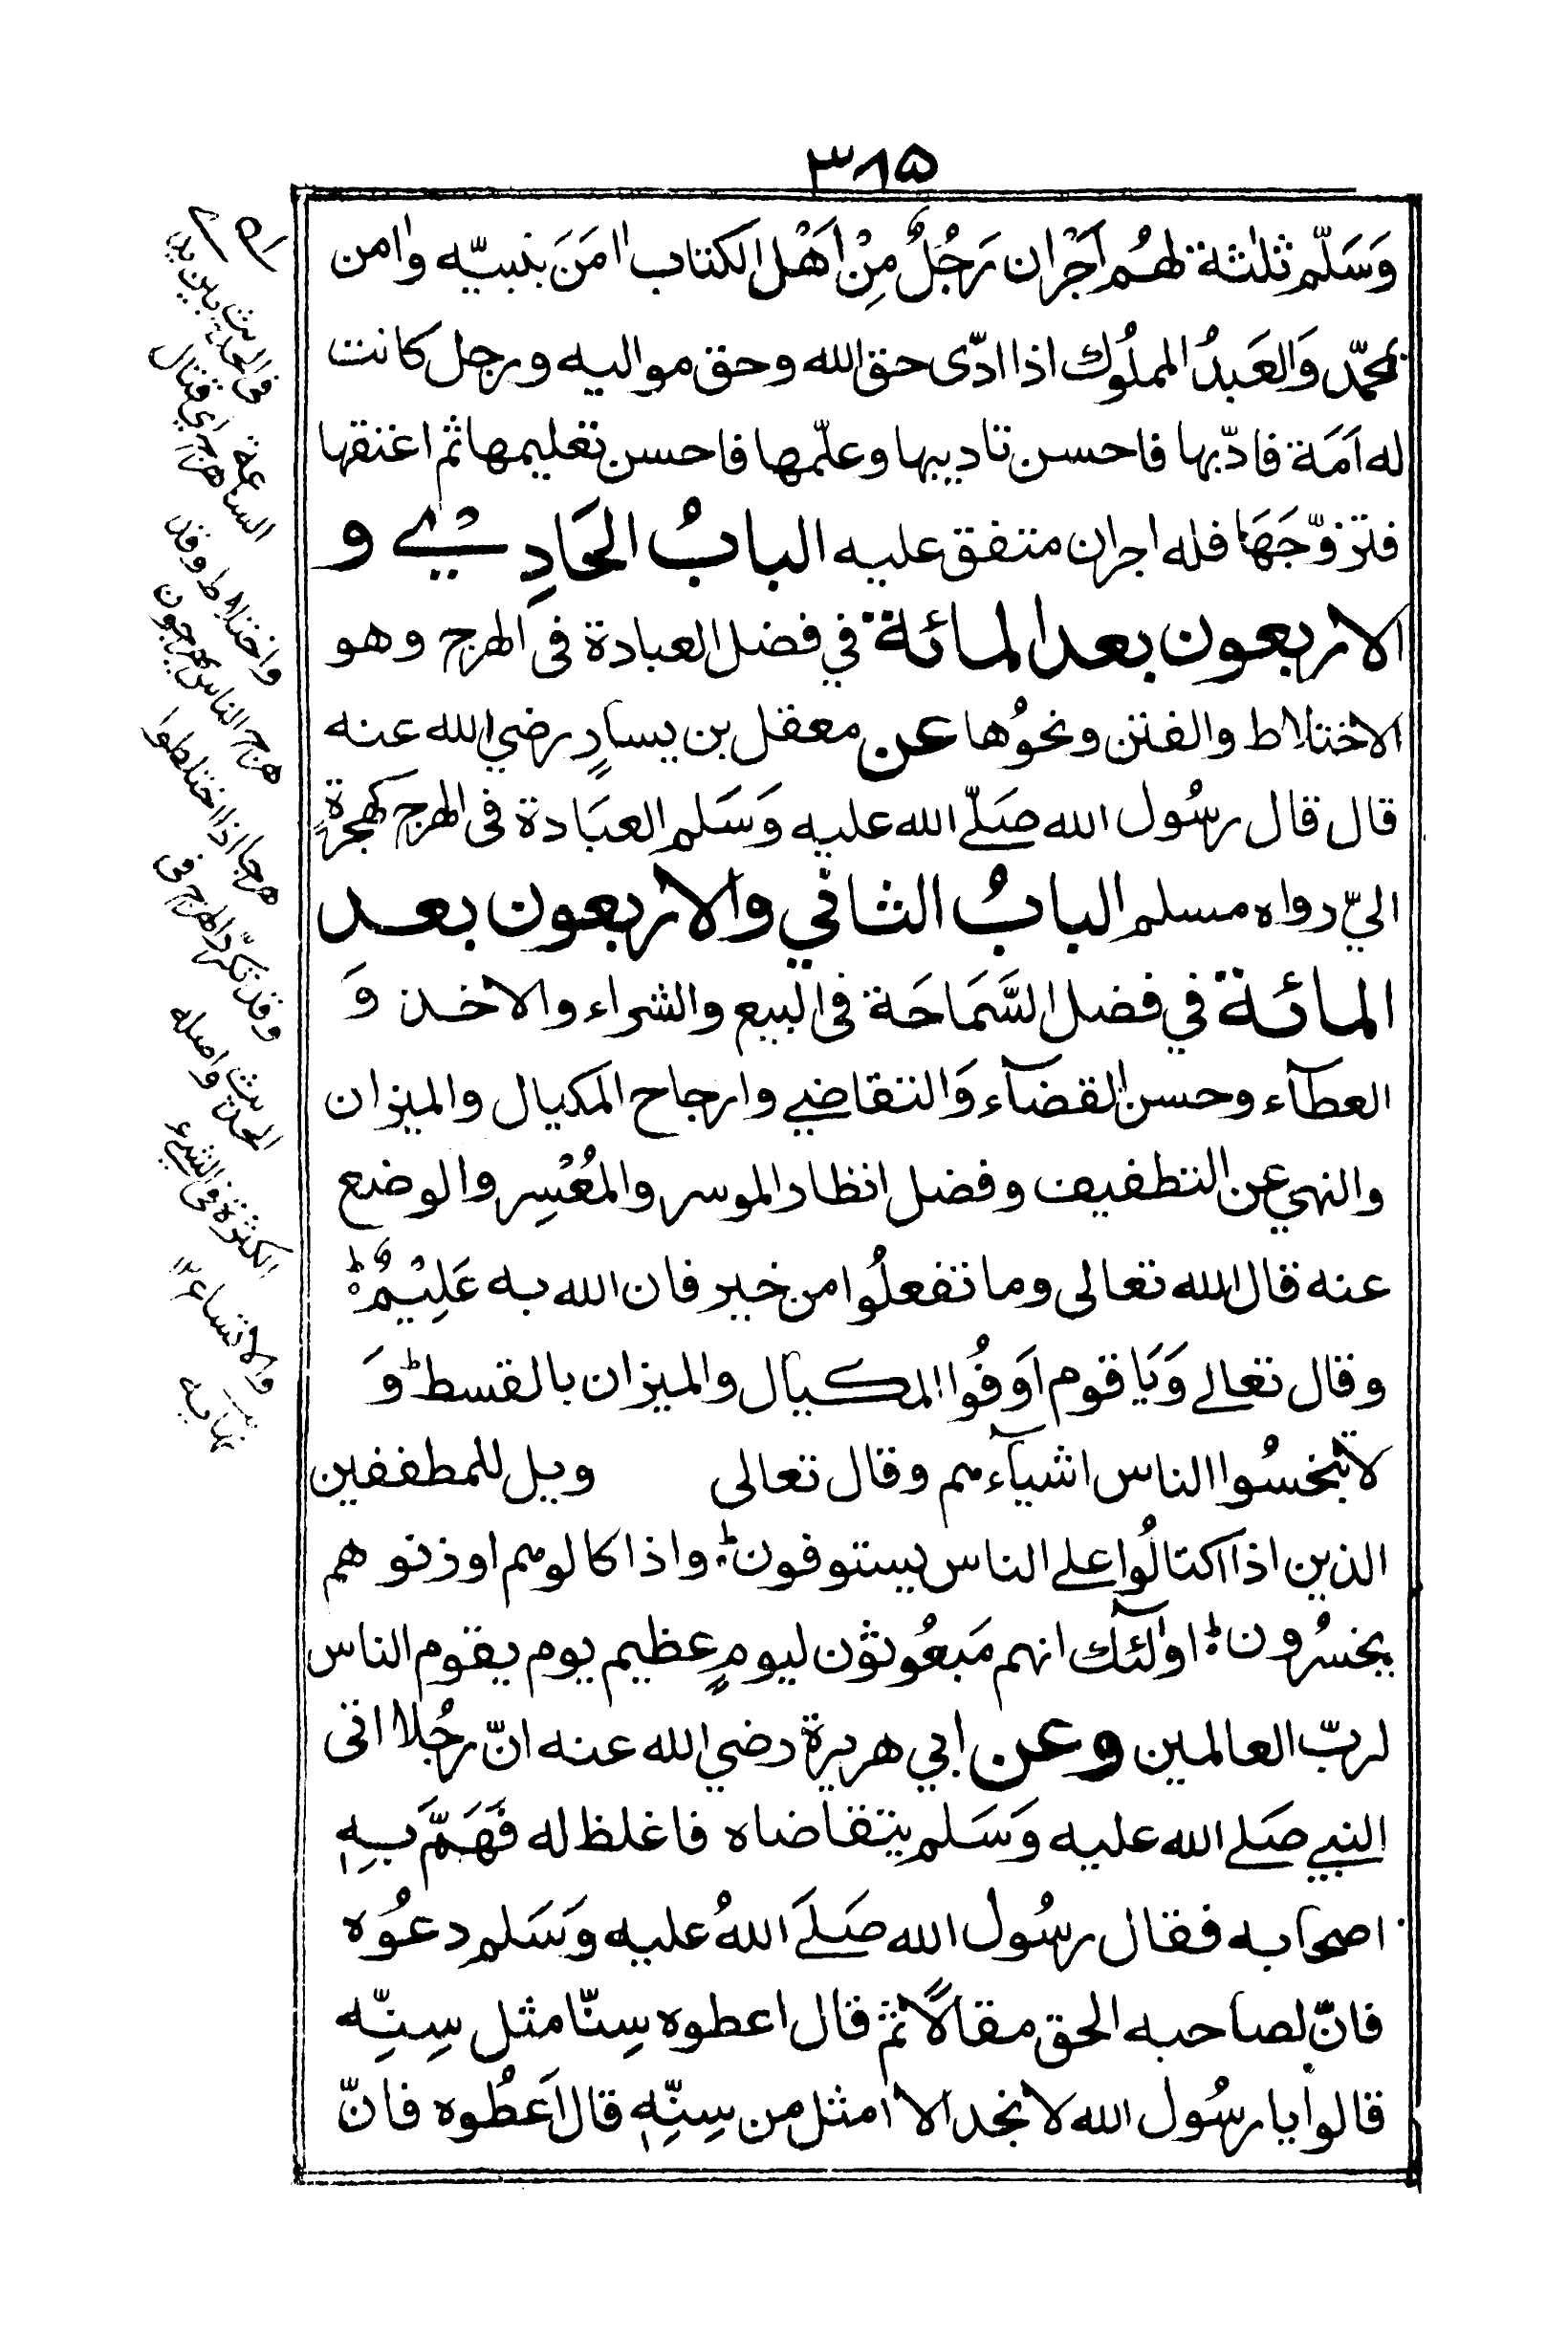 ٣٨٥
وَسَلّم ثلٰثة لهُم اَجْران رَجُلٌ مِنْ اَهْل الكتاب اٰمَنَ بنبيّه واٰمن
بمحمّد وَالعَبدُ المملُوك اذا ادّى حق الله وحق مواليه ورجل كانت
له اَمَة فادّبها فاحسن تاديبها وعلّمها فاحسن تعليمها ثم اعتقها
فتزوّجَهَا فله اجران متفق عليه البابُ الحَادِيْ و
الاربعون بعد المائة في فضل العبادة فى الهرج وهو
الاختلاط والفتن ونحوُها عن معقل بن يسارٍ رضي الله عنه
قال قال رسُول الله صَلّے الله عليه وَسَلم العبَادة فى الهرج كهجرةٍ
اليّ رواه مسلم البابُ الثاني والاربعون بعد
المائة في فضل السَّمَاحَة فى البيع والشراء والاخذ وَ
العطآء وحسن القضآء وَالتقاضے وارجاح المكيال والميزان
والنهى عن التطفيف وفضل انظار الموسر والمُعْسِر والوضع
عنه قال الله تعالى وما تفعلُوا من خير فان الله به عَلِيْمٌ ؕ
وقال تعالے وَيَا قوم اَوفُوا المكيال والميزان بالقسط ؕ وَ
لا تبخسُوا الناس اشيآءهم وقال تعالى ويل للمطففين
الذين اذا اكتالُوا علے الناس يستوفون ؕ واذا كالوهم او زنوهم
يخسرُون ؕ اولٰٓئك انهم مَبعُوثون ليومٍ عظيم يوم يقوم الناس
لربّ العالمين وعن ابي هريرة رضي الله عنه انّ رجُلا اتى
النبي صَلے الله عليه وَسَلم يتقاضاه فاغلظ له فَهَمَّ بِهٖ
اصحابه فقال رسُول الله صَلےَ اللهُ عليه وَسَلم دعُوه
فانّ لصاحب الحق مقالاً ثمّ قال اعطوه سِنّا مثل سِنِّه
قالوا يا رسُول الله لا نجد الا امثل من سِنِّهٖ قال اَعطُوه فانّ
فى الحديث بين يدى
الساعة هرج اى قتال
واختلاط وقد
هرج الناس يهرجون
هرجا اذا اختلطوا
وقد تكرّر الهرج فى
الحديث واصله
الكثرة فى الشىء
والاتساع ١٢
نهايه